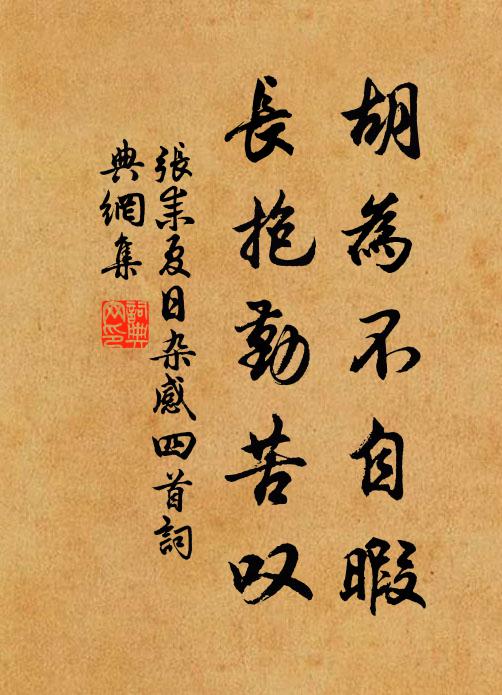 胡為不自暇
長抱勤苦叹
張耒夏日杂感四首詞
典網集
詞典
网印